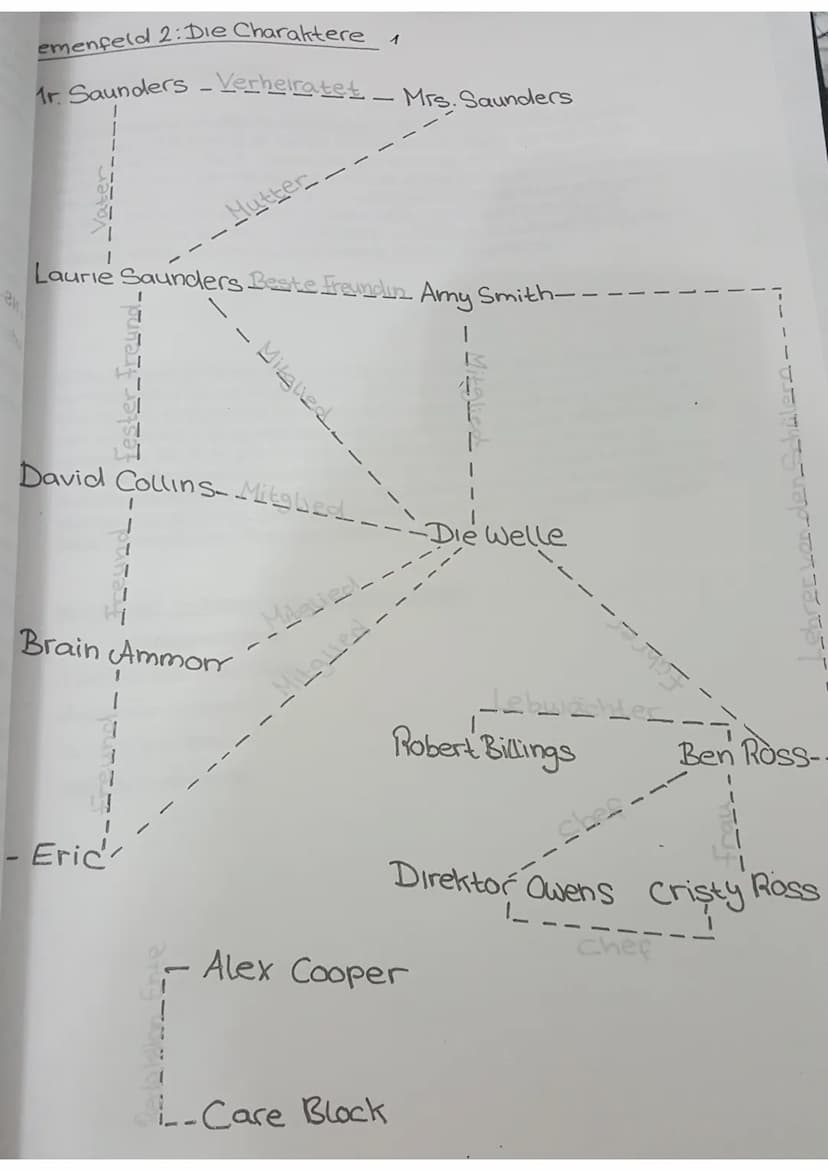 emenfeld 2: Die Charaktere 1
Mr. Saunders - Verheiratet - Mrs. Saunders
Vater
Mutter
Laurie Saunders Beste Freundin Amy Smith
fester Freund
Mitglied
Mitglied
Lehrer von den Schülern
David Collins Mitglied
Die Welle
Freund
Mitglied
Brain Ammon
Mitglied
Freund
Lebwächter
Robert Billings Ben Ross
Chef
Frau
- Eric
Direktor Owens Cristy Ross
Chef
Alex Cooper
Care Block